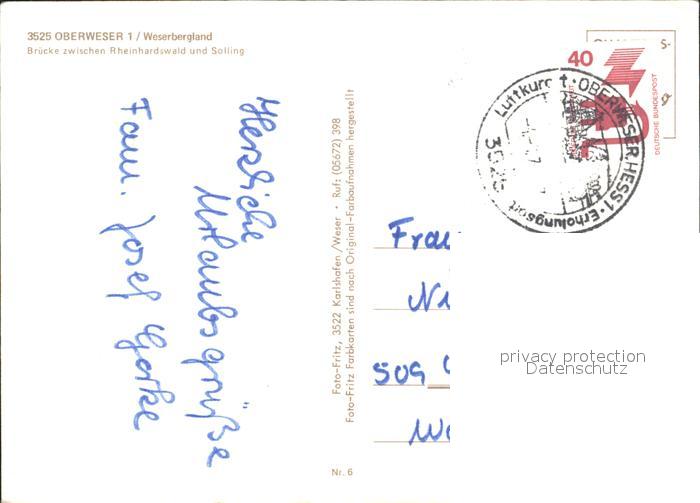 3525 OBERWESER 1 / Weserbergland
Brücke zwischen Rheinhardswald und Solling
Herzliche
Urlaubsgrüße
Fam. Josef
Foto-Fritz, 3522 Karlshafen/Weser · Ruf: (05672) 398
Foto-Fritz Farbkarten sind nach Original-Farbaufnahmen hergestellt
Nr. 6
40
DEUTSCHE BUNDESPOST
Luftkurort · OBERWESER, HESS 1 · Erholungsort
Frau
509
privacy protection
Datenschutz